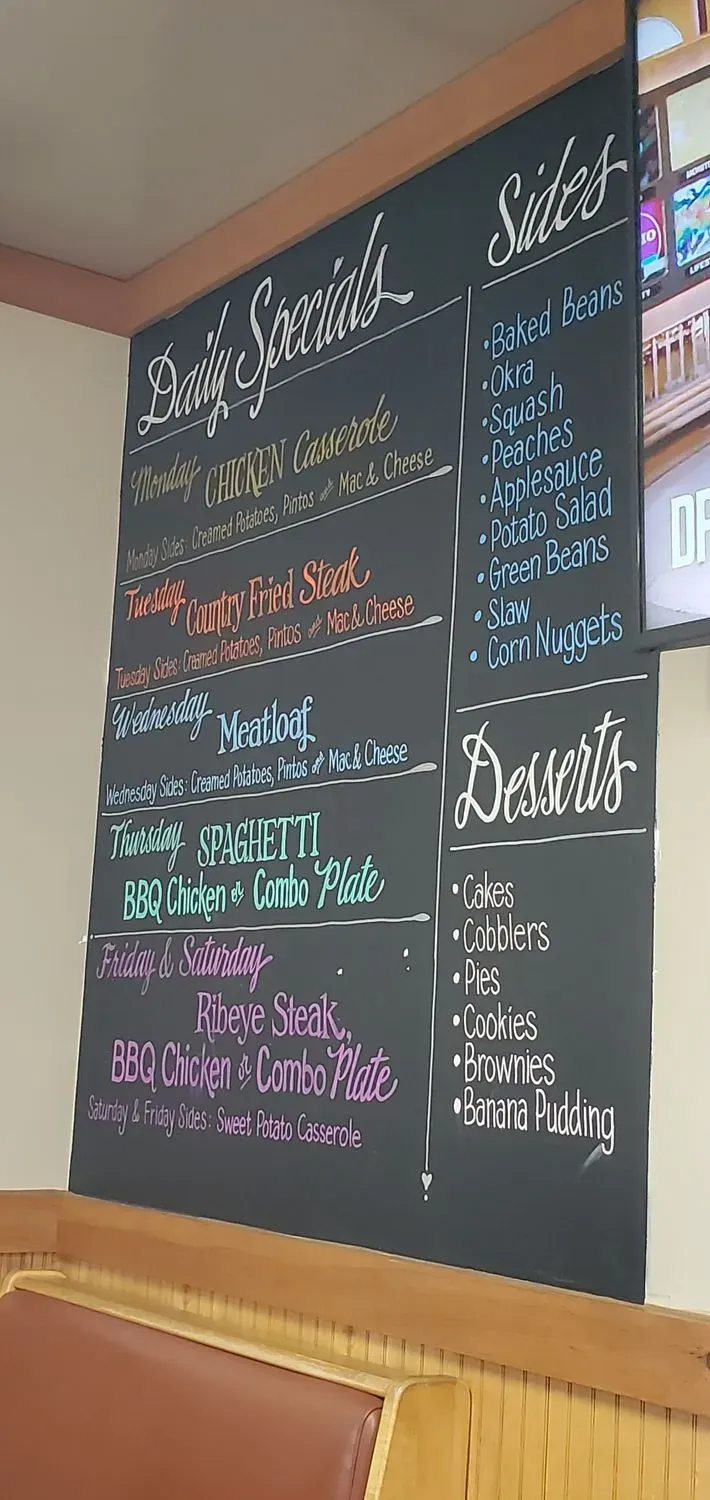 Daily Specials
Monday CHICKEN Casserole
Monday Sides: Creamed Potatoes, Pintos and Mac & Cheese
Tuesday Country Fried Steak
Tuesday Sides: Creamed Potatoes, Pintos and Mac & Cheese
Wednesday Meatloaf
Wednesday Sides: Creamed Potatoes, Pintos and Mac & Cheese
Thursday SPAGHETTI
BBQ Chicken or Combo Plate
Friday & Saturday
Ribeye Steak,
BBQ Chicken or Combo Plate
Saturday & Friday Sides: Sweet Potato Casserole
Sides
•Baked Beans
•Okra
•Squash
•Peaches
•Applesauce
•Potato Salad
•Green Beans
•Slaw
•Corn Nuggets
Desserts
•Cakes
•Cobblers
•Pies
•Cookies
•Brownies
•Banana Pudding